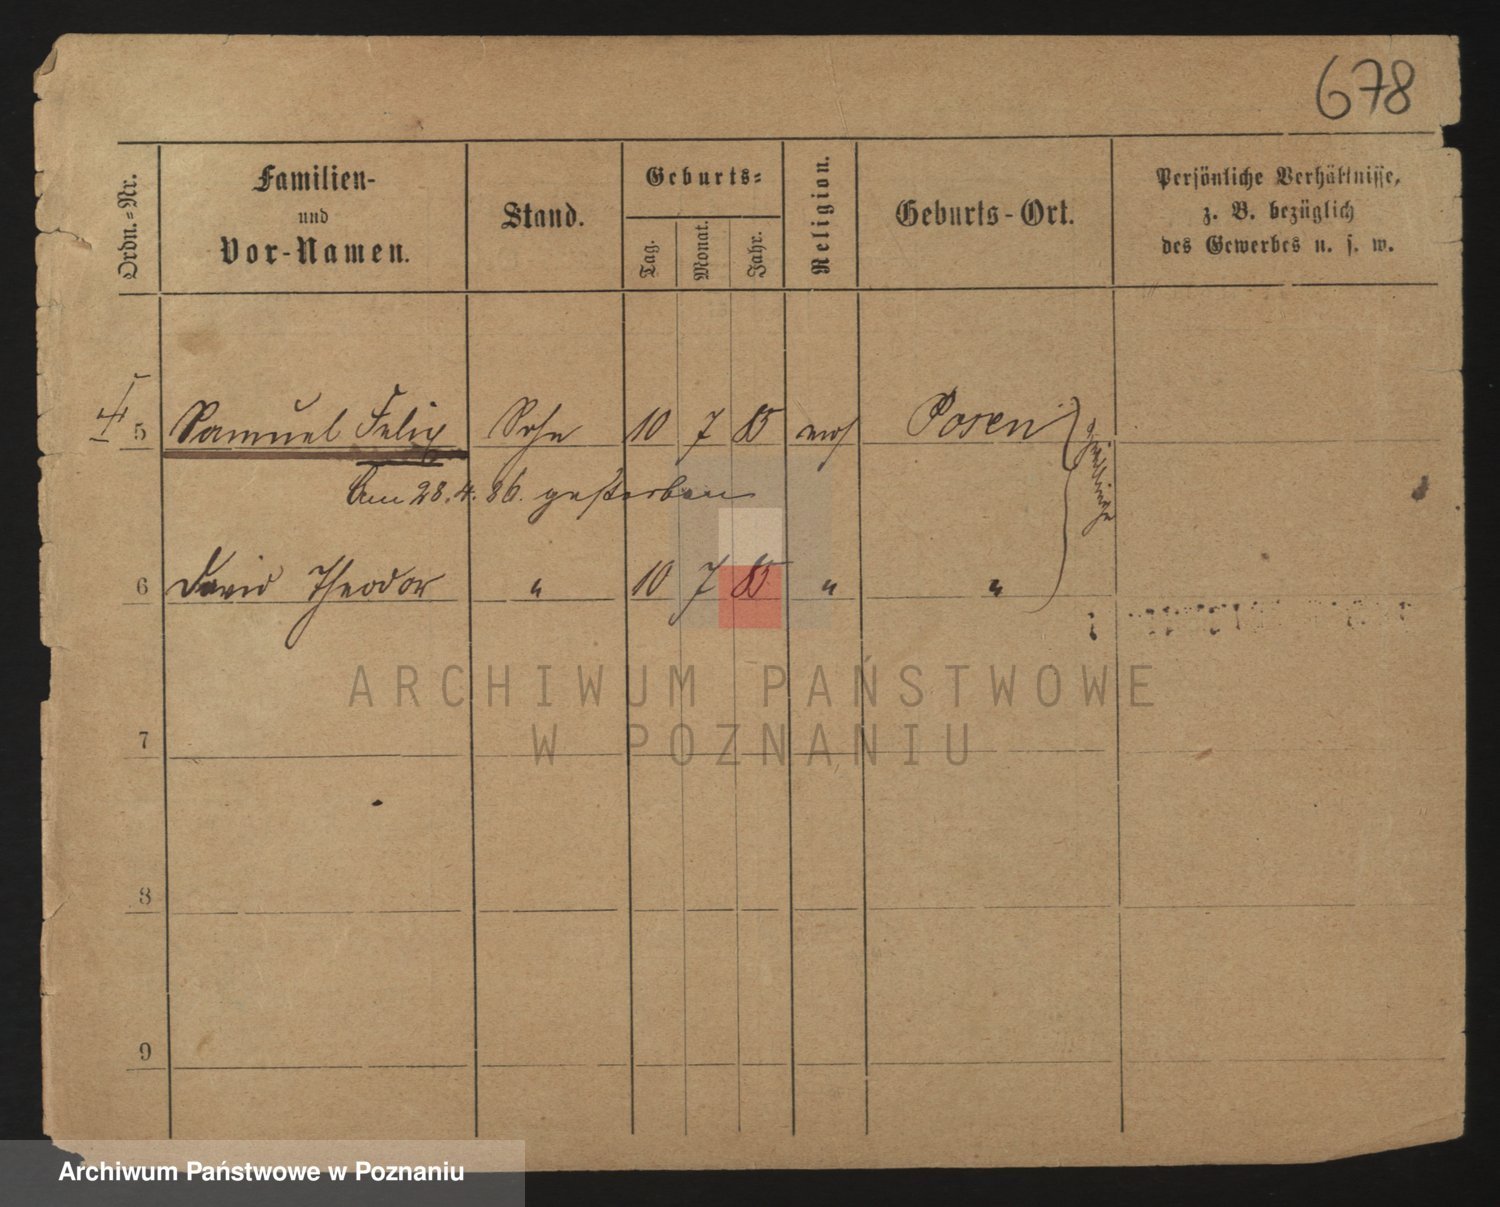 678
Ordn.-Nr.
Familien-
und
Vor-Namen.
Stand.
Geburts-
Tag.
Monat.
Jahr.
Religion.
Geburts-Ort.
Persönliche Verhältnisse,
z. B. bezüglich
des Gewerbes u. s. w.
5 Samuel Felix Sohn 10 7 85 mos Posen
Zwillinge
Am 28.4.86. gestorben
6 David Theodor " 10 7 85 " "
7
8
9
ARCHIWUM PAŃSTWOWE
W POZNANIU
Archiwum Państwowe w Poznaniu